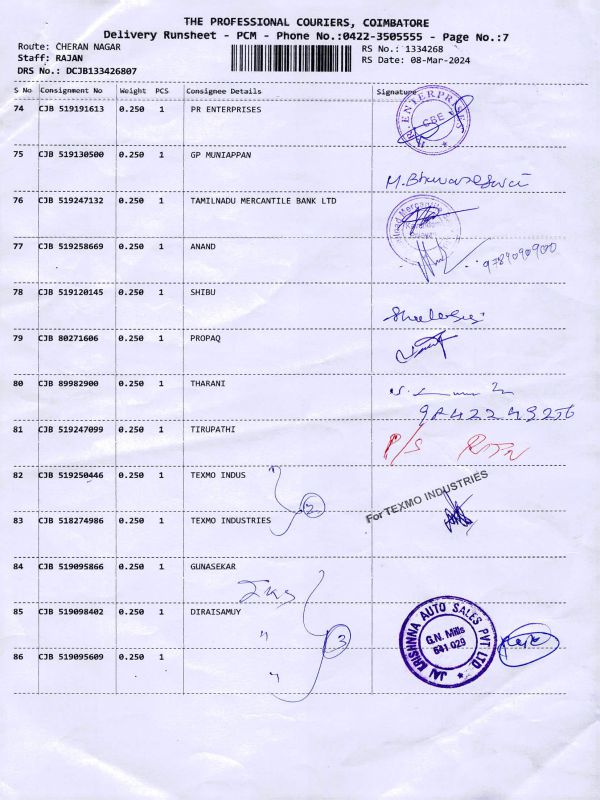 THE PROFESSIONAL COURIERS, COIMBATORE
Delivery Runsheet - PCM - Phone No.:0422-3505555 - Page No.:7
Route: CHERAN NAGAR RS No.: 1334268
Staff: RAJAN RS Date: 08-Mar-2024
DRS No.: DCJB133426807
S No Consignment No Weight PCS Consignee Details Signature
74 CJB 519191613 0.250 1 PR ENTERPRISES
R. ENTERPRISES CBE
75 CJB 519130500 0.250 1 GP MUNIAPPAN
M. Bhuvaneswari
76 CJB 519247132 0.250 1 TAMILNADU MERCANTILE BANK LTD
77 CJB 519258669 0.250 1 ANAND
9789090900
78 CJB 519120145 0.250 1 SHIBU
79 CJB 80271606 0.250 1 PROPAQ
80 CJB 89982900 0.250 1 THARANI
81 CJB 519247099 0.250 1 TIRUPATHI
P/S RTN
82 CJB 519250446 0.250 1 TEXMO INDUS
2
For TEXMO INDUSTRIES
83 CJB 518274986 0.250 1 TEXMO INDUSTRIES
84 CJB 519095866 0.250 1 GUNASEKAR
85 CJB 519098402 0.250 1 DIRAISAMUY
" 3
JAI KRISHNNA AUTO SALES PVT LTD
G.N. Mills
641 029
86 CJB 519095609 0.250 1
"